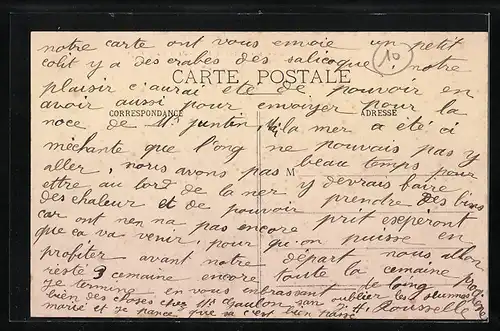 notre carte ont vous envoie un petit
colit y a des crabes des salicoque notre
10
CARTE POSTALE
plaisir c'aurai été de pouvoir en
avoir aussi pour envoyer pour la
CORRESPONDANCE
ADRESSE
noce de la mer a été ci
méchante que l'ong ne pouvais pas y
aller, nous avons pas beau temps pour
M
ettre au bord de la mer y devrais faire
des chaleur et de pouvoir prendre des
car ont nen na pas encore prit esepéront
que ca va venir, pour qu'on puisse en
profiter avant notre départ nous allon
resté 3 semaine encore toute la cemaine
je termine en vous enbrassant de loing
bien des choses chez Mr Gaulon san oublier les
marié et je pance que sa c'est bien passé